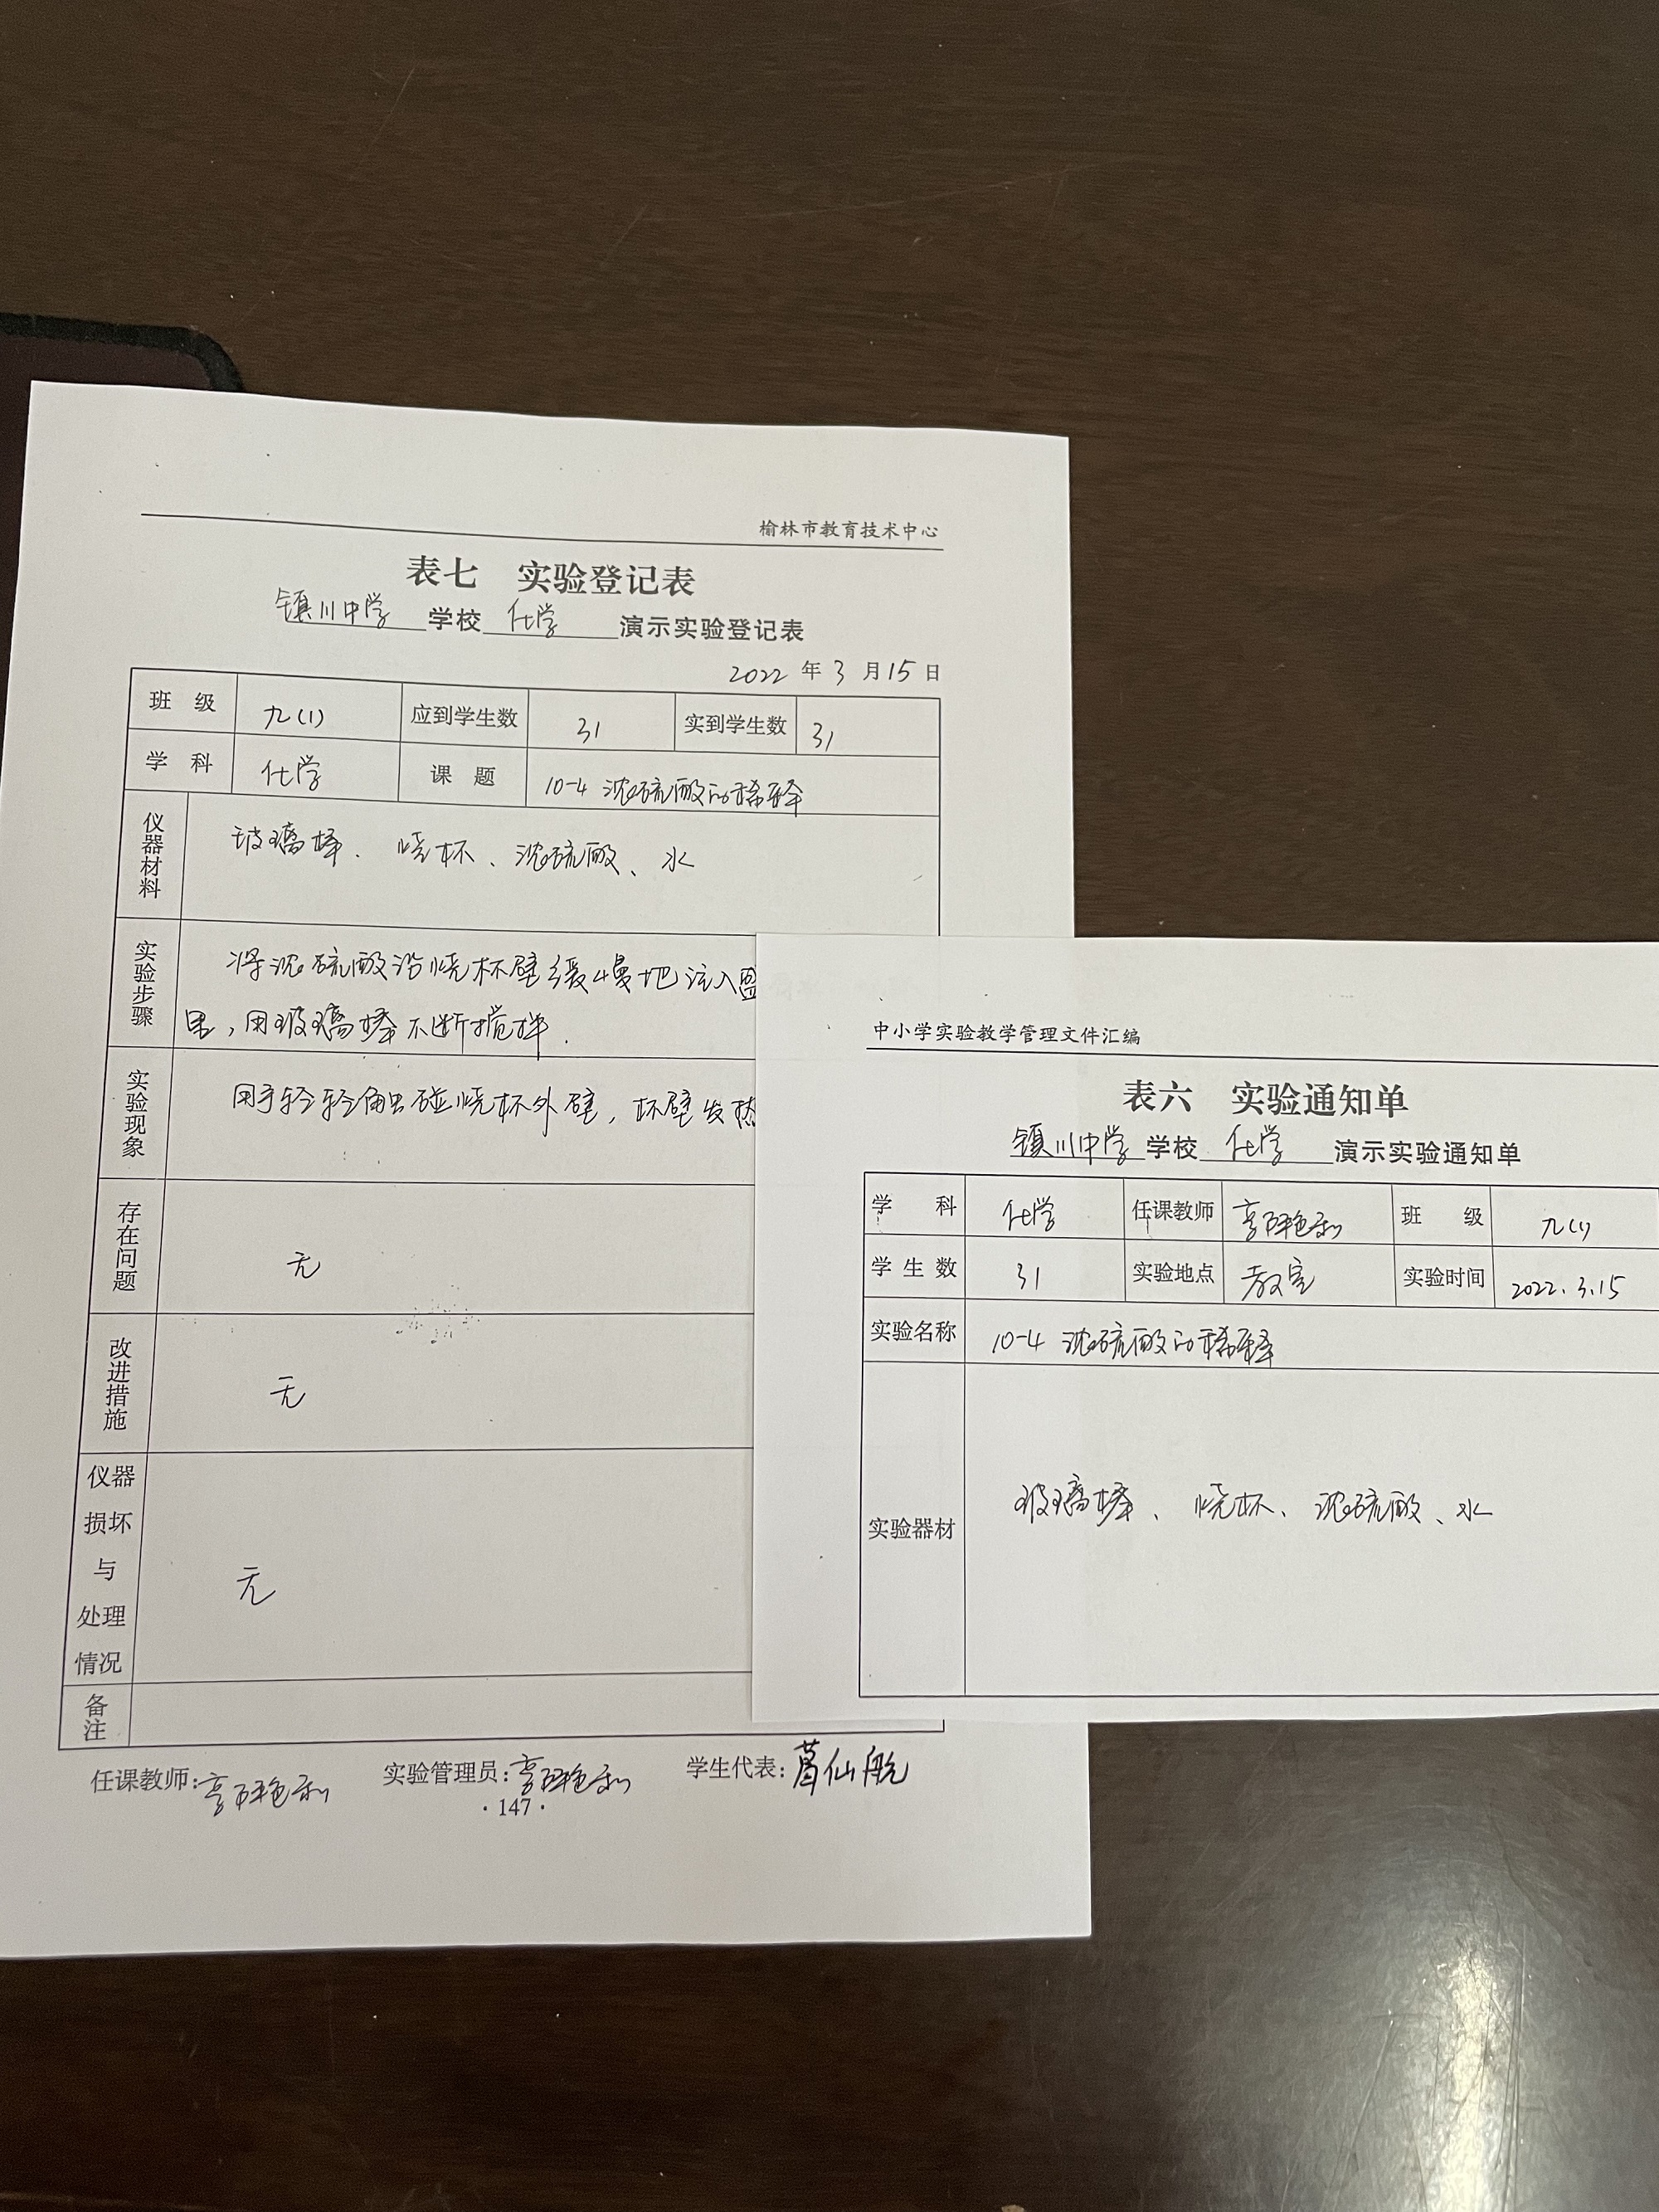 榆林市教育技术中心
表七 实验登记表
镇川中学 学校 化学 演示实验登记表
2022 年 3 月 15 日
班 级 九(1) 应到学生数 31 实到学生数 31
学 科 化学 课 题 10-4 浓硫酸的稀释
仪器材料 玻璃棒、烧杯、浓硫酸、水
实验步骤 将浓硫酸沿烧杯壁缓慢地注入盛
里,用玻璃棒不断搅拌.
实验现象 用手轻轻触碰烧杯外壁,杯壁发热
存在问题 无
改进措施 无
仪器
损坏
与
处理
情况
无
备注
任课教师: 实验管理员: 学生代表:葛仙航
·147·
中小学实验教学管理文件汇编
表六 实验通知单
镇川中学 学校 化学 演示实验通知单
学 科 化学 任课教师 班 级 九(1)
学生数 31 实验地点 教室 实验时间 2022.3.15
实验名称 10-4 浓硫酸的稀释
实验器材 玻璃棒、烧杯、浓硫酸、水